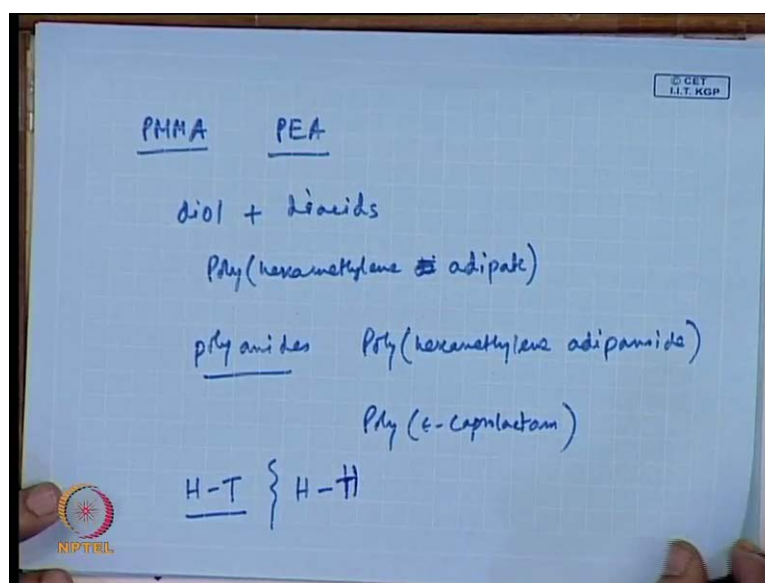 © CET
I.I.T. KGP
PMMA PEA
diol + diacids
Poly(hexamethylene adipate)
polyamides Poly(hexamethylene adipamide)
Poly(ε-caprolactam)
H-T } H-H
NPTEL